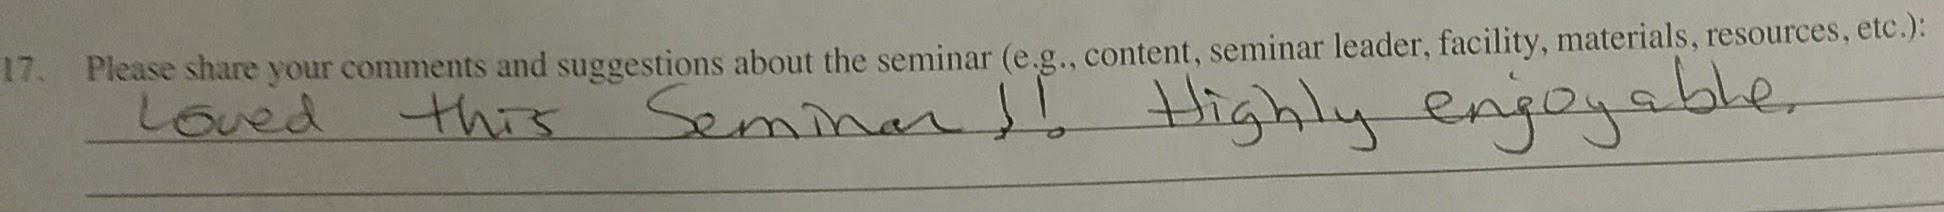 17. Please share your comments and suggestions about the seminar (e.g., content, seminar leader, facility, materials, resources, etc.):
Loved this Seminar!! Highly enjoyable.